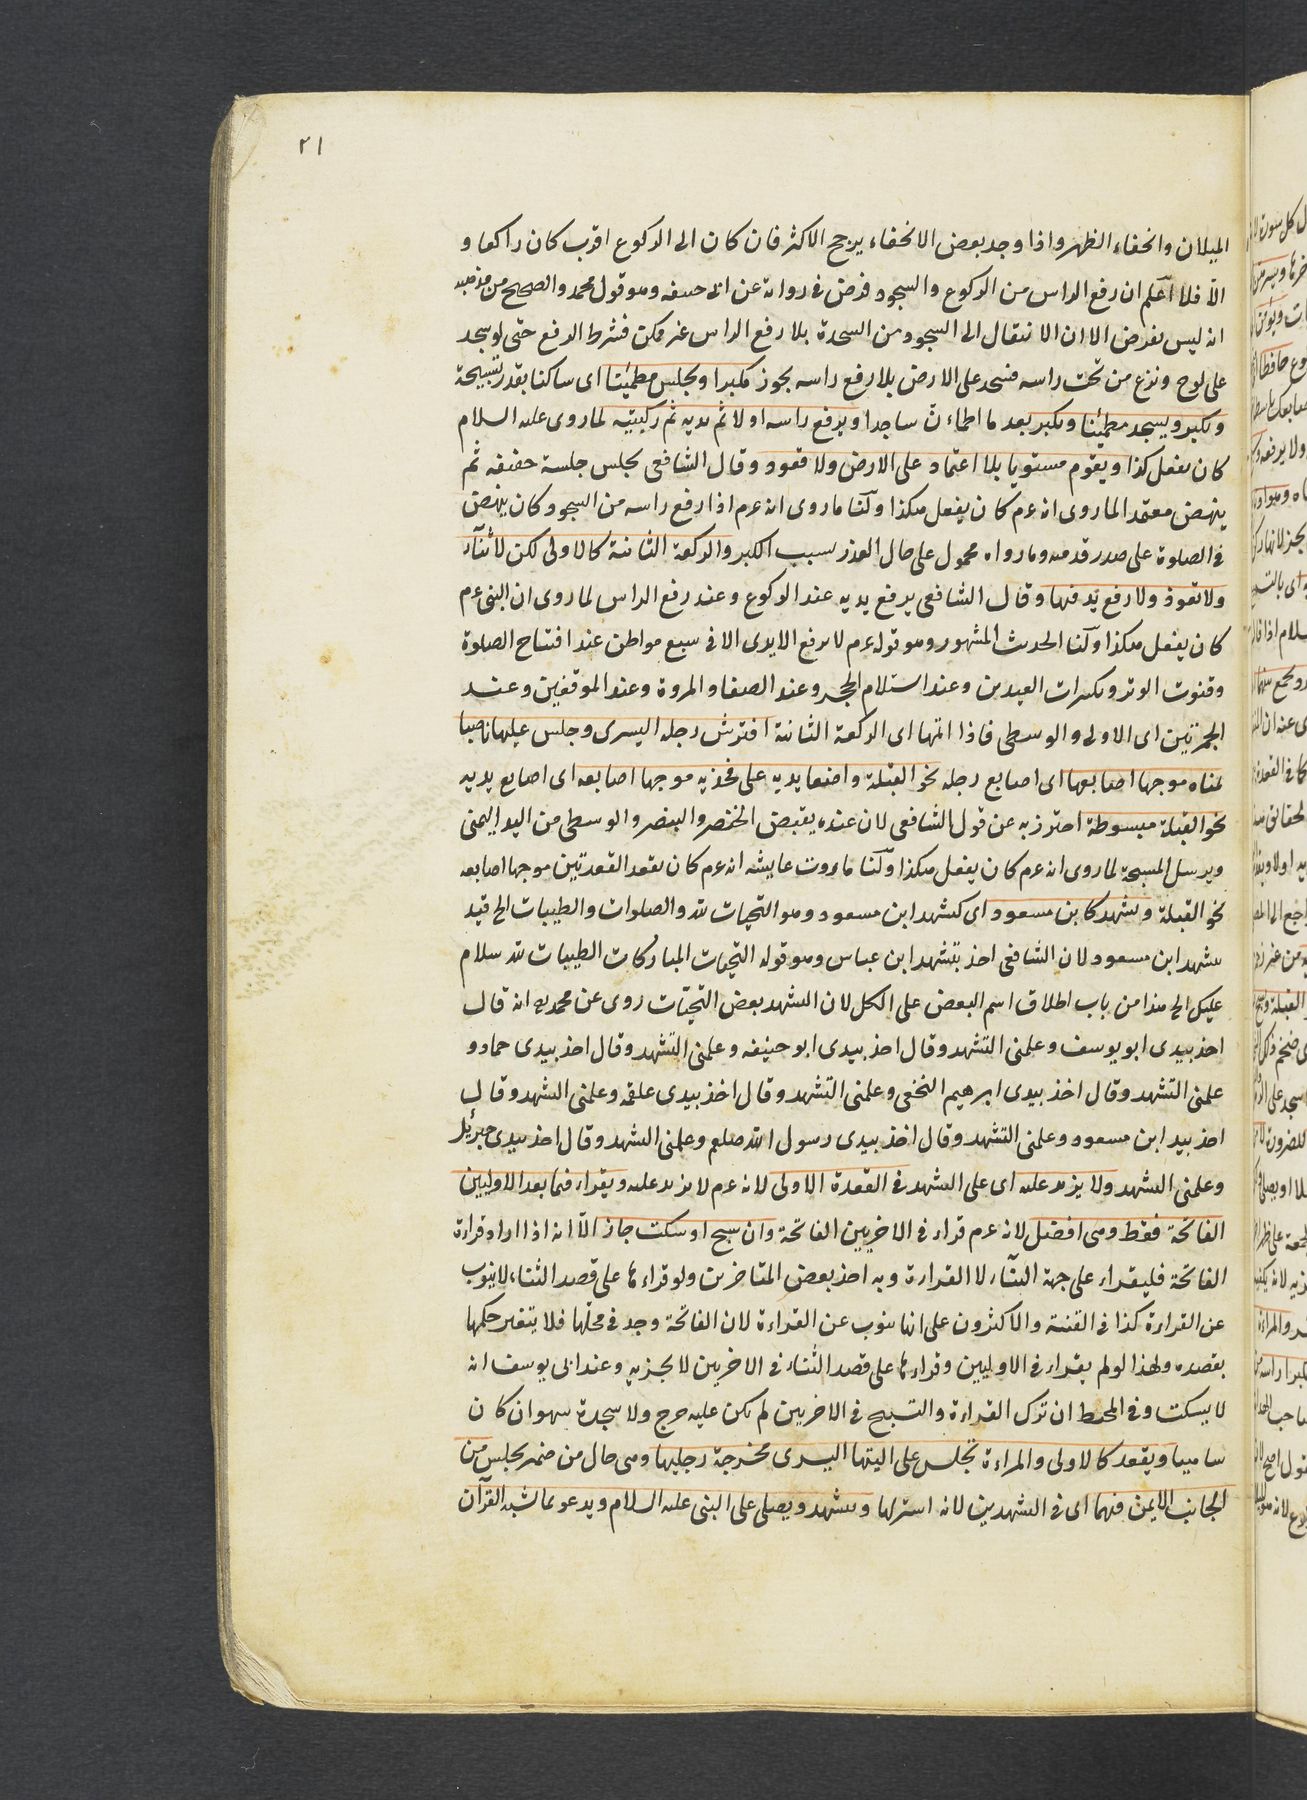 ٢١
الميلان وانحناء الظهر واذا وجد بعض الانحناء يرجح الاكثر فان كان الى الركوع اقرب كان راكعا و
الّا فلا اعلم ان رفع الراس من الركوع والسجود فرض فى رواية عن ابى حنيفه وهو قول محمد والصحيح من مذهبه
انه ليس بفرض الا ان الانتقال الى السجود من السجدة بلا رفع الراس غير ممكن فشرط الرفع حتى لو سجد
على لوح ونزع من تحت راسه فسجد على الارض بلا رفع راسه يجوز مكبرا ويجلس مطمئنا اى ساكنا بقدر تسبيحة
ويكبر ويسجد مطمئنا ويكبر بعد ما اطمأن ساجدا ويرفع راسه اولا ثم يديه ثم ركبتيه لما روى عليه السلام
كان يفعل كذا ويقوم مستويا بلا اعتماد على الارض ولا قعود وقال الشافعى يجلس جلسة خفيفة ثم
ينهض معتمدا لما روى انه عم كان يفعل هكذا ولنا ما روى انه عم اذا رفع راسه من السجود كان ينهض
فى الصلوة على صدر قدميه وما رواه محمول على حال العذر بسبب الكبر والركعة الثانية كالاولى لكن لا ثناء
ولا تعوذ ولا رفع يد فيها وقال الشافعى يرفع يديه عند الركوع وعند رفع الراس لما روى ان النبى عم
كان يفعل هكذا ولنا الحديث المشهور وهو قوله عم لا يرفع الايدى الا فى سبع مواطن عند افتتاح الصلوة
وقنوت الوتر وتكبيرات العيدين وعند استلام الحجر وعند الصفا والمروة وعند الموقفين وعند
الجمرتين اى الاولى والوسطى فاذا اتمها اى الركعة الثانية افترش رجله اليسرى وجلس عليها ناصبا
يمناه موجها اصابعها اى اصابع رجله نحو القبلة واضعا يديه على فخذيه موجها اصابعه اى اصابع يديه
نحو القبلة مبسوطة احترز به عن قول الشافعى لان عنده يقبض الخنصر والبنصر والوسطى من اليد اليمنى
ويرسل المسبحة لما روى انه عم كان يفعل هكذا ولنا ما روت عايشه انه عم كان يقعد القعدتين موجها اصابعه
نحو القبلة وتشهد كابن مسعود اى كتشهد ابن مسعود وهو التحيات لله والصلوات والطيبات الخ قيد
بتشهد ابن مسعود لان الشافعى اخذ بتشهد ابن عباس وهو قوله التحيات المباركات الطيبات لله سلام
عليك الخ هذا من باب اطلاق اسم البعض على الكل لان التشهد بعض التحيات روى عن محمد انه قال
اخذ بيدى ابو يوسف وعلمنى التشهد وقال اخذ بيدى ابو حنيفه وعلمنى التشهد وقال اخذ بيدى حماد و
علمنى التشهد وقال اخذ بيدى ابرهيم النخعى وعلمنى التشهد وقال اخذ بيدى علقمه وعلمنى التشهد وقال
اخذ بيد ابن مسعود وعلمنى التشهد وقال اخذ بيدى رسول الله صلعم وعلمنى التشهد وقال اخذ بيدى جبرئيل
وعلمنى التشهد ولا يزيد عليه اى على التشهد فى القعدة الاولى لانه عم لا يزيد عليه ويقراء فيما بعد الاوليين
الفاتحة فقط وهى افضل لانه عم قراء فى الاخريين الفاتحة وان سبح او سكت جاز الّا انه اذا اراد قراءة
الفاتحة فليقراء على جهة الثناء لا القراءة وبه اخذ بعض المتاخرين ولو قراءها على قصد الثناء لا ينوب
عن القراءة كذا فى القنية والاكثرون على انها ينوب عن القراءة لان الفاتحة وجد فى محلها فلا يتغير حكمها
بقصده ولهذا لو لم يقراء فى الاوليين وقراءها على قصد الثناء فى الاخريين لا يجزيه وعند ابى يوسف انه
لا يسكت وفى المحيط ان ترك القراءة والتسبيح فى الاخريين لم يكن عليه حرج ولا سجدة سهو ان كان
ساهيا ويقعد كالاولى والمراءة تجلس على اليتها اليسرى مخرجة رجليها وهى حال من ضمير يجلس من
الجانب الايمن فيهما اى فى التشهدين لانه استر لها ويتشهد ويصلى على النبى عليه السلام ويدعو بما شبه القرآن